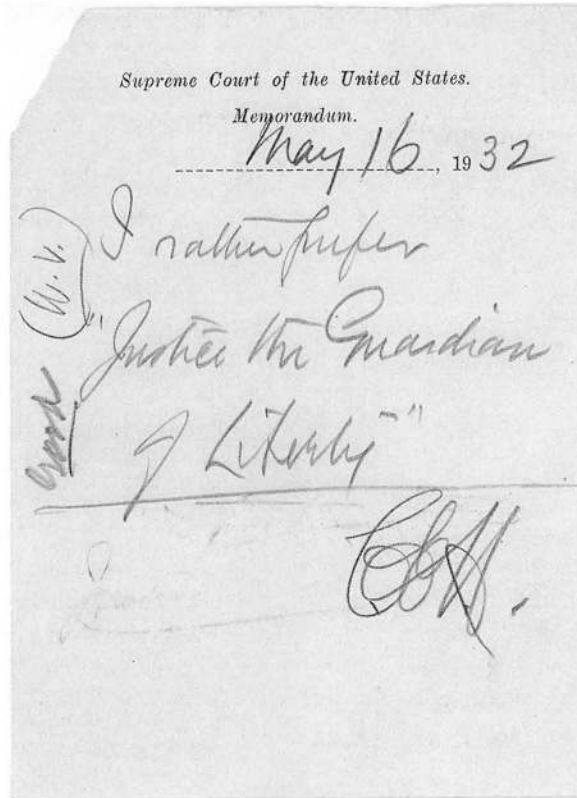 Supreme Court of the United States.
Memorandum.
May 16, 1932
I rather prefer
"Justice the Guardian
of Liberty"
C E H.
Good
(W.V.)